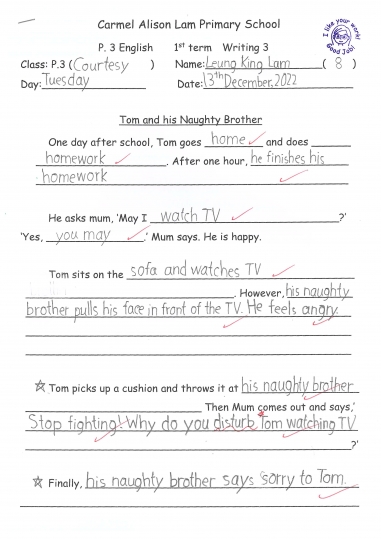 Carmel Alison Lam Primary School
I like your work!
Good Job!
P. 3 English 1st term Writing 3
Class: P.3 (Courtesy) Name: Leung King Lam (8)
Day: Tuesday Date: 13th December, 2022
Tom and his Naughty Brother
One day after school, Tom goes home and does
homework. After one hour, he finishes his
homework
He asks mum, 'May I watch TV ?'
'Yes, you may.' Mum says. He is happy.
Tom sits on the sofa and watches TV
. However, his naughty
brother pulls his face in front of the TV. He feels angry.
Tom picks up a cushion and throws it at his naughty brother
Then Mum comes out and says,'
Stop fighting! Why do you disturb Tom watching TV
?'
Finally, his naughty brother says sorry to Tom.